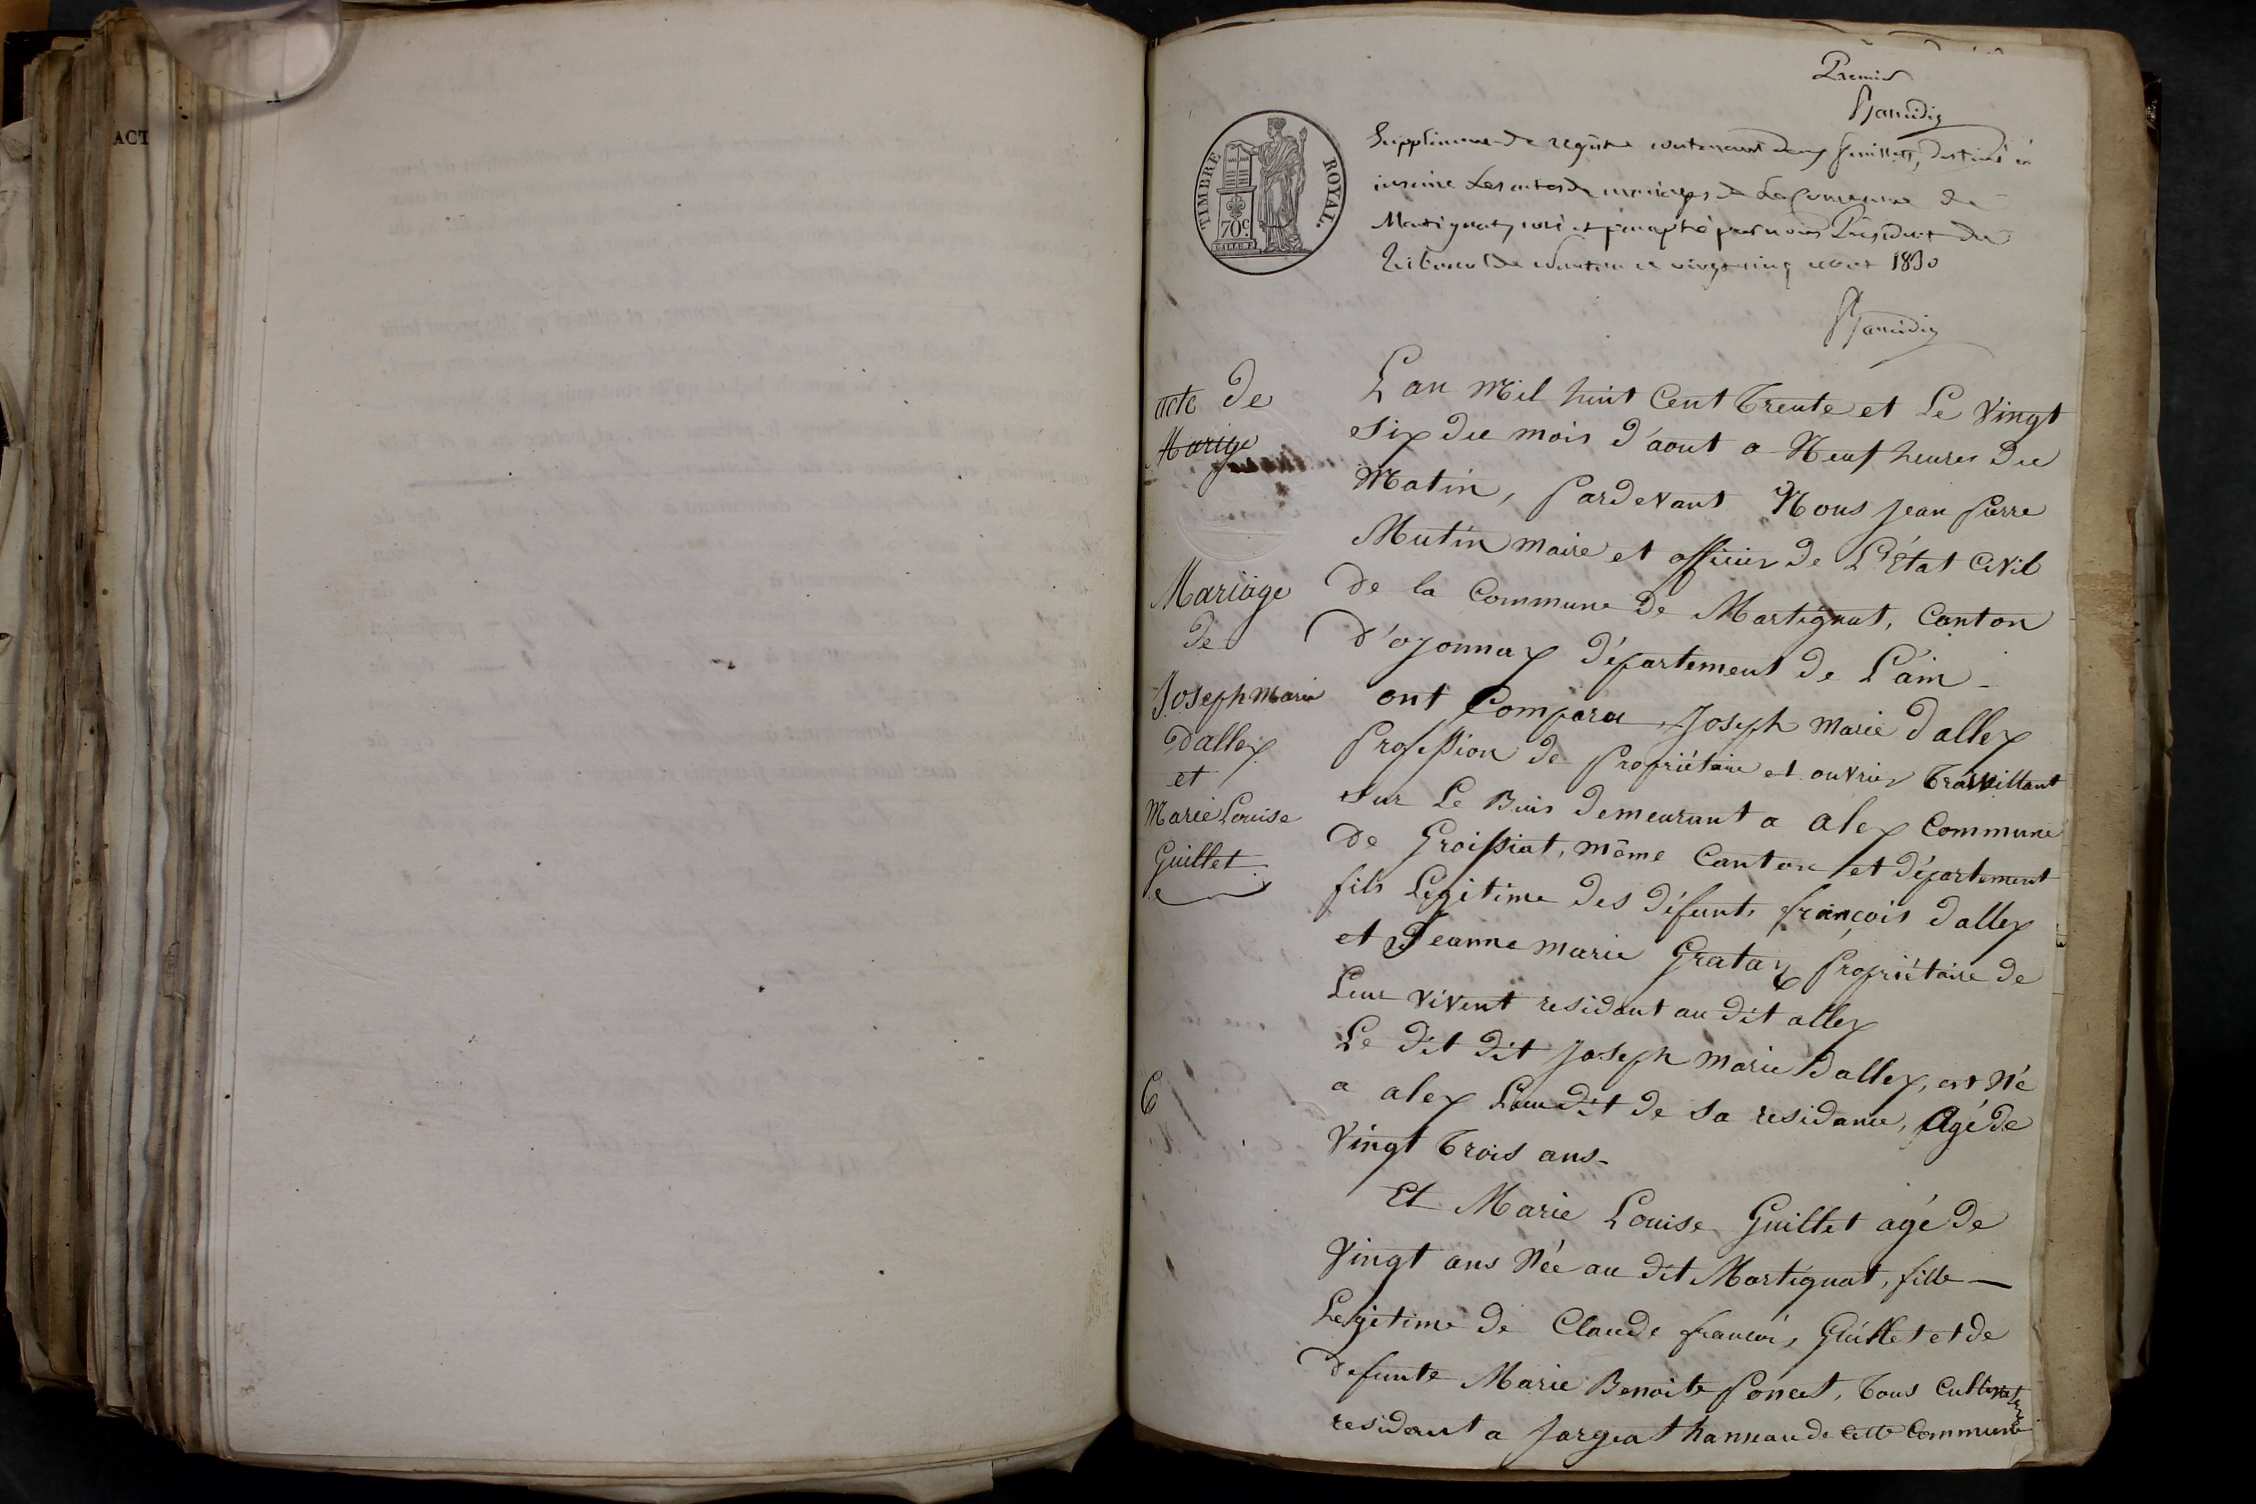 ACT
Premier
TIMBRE ROYAL.
70c.
Supplément de registre contenant deux feuillets, destiné à
inscrire Les actes de mariages de La Commune de
Martignat, coté et paraphé par nous Président du
Tribunal de Nantua ce vingt cinq août 1830
acte de
Marige
Mariage
de
Joseph Marie
Dallex
et
Marie Louise
Guillet
L'an Mil huit Cent Trente et Le Vingt
six du mois d'aout a Neuf heures du
Matin, Pardevant Nous Jean Pierre
Mutin maire et officier de L'État Civil
de la Commune de Martignat, Canton
d'oyonnax département de L'ain
ont Comparu Joseph Marie Dallex
Profession de Propriétaire et ouvrier Travaillant
sur Le Buis demeurant a alex Commune
de Groissiat, même Canton et département
fils Legitime des défunts françois Dallex
et Jeanne Marie Gratay Propriétaire de
Leur vivent residant au dit allex
Le dit dit Joseph Marie Dallex, est Né
a alex Lieu dit de sa residance, Agé de
Vingt Trois ans
Et Marie Louise Guillet agé de
Vingt ans Née au dit Martignat, fille
Legitime de Claude francois Guillet et de
defunte Marie Benoite Poncet, Tous
resident a Jargeat hameau de Cette Commune